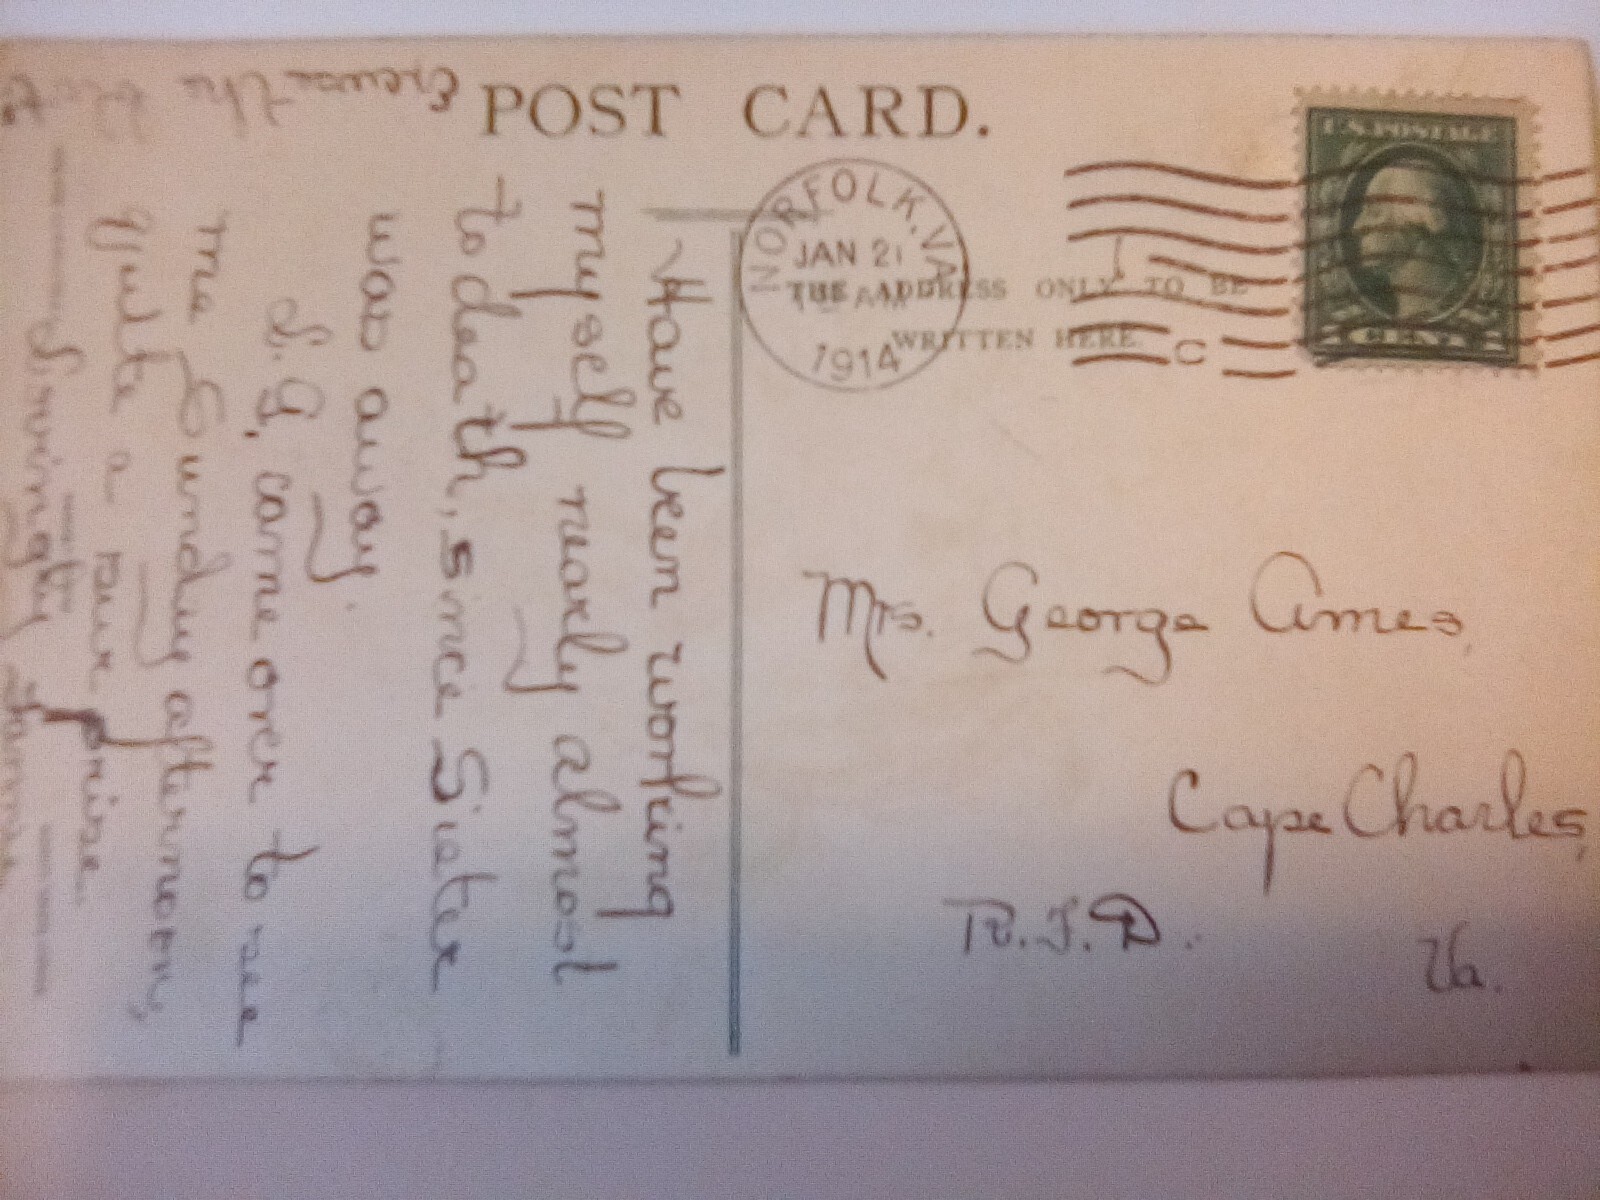 POST CARD.
NORFOLK, VA
JAN 21
AM
1914
U.S. POSTAGE
CENT
THE ADDRESS ONLY TO BE
WRITTEN HERE.
C
Mrs. George Ames,
Cape Charles,
R.F.D.
Va.
Have been working
myself nearly almost
to death, since Sister
was away.
S.G. came over to see
me Sunday afternoon,
Quite a surprise.
Lovingly
the